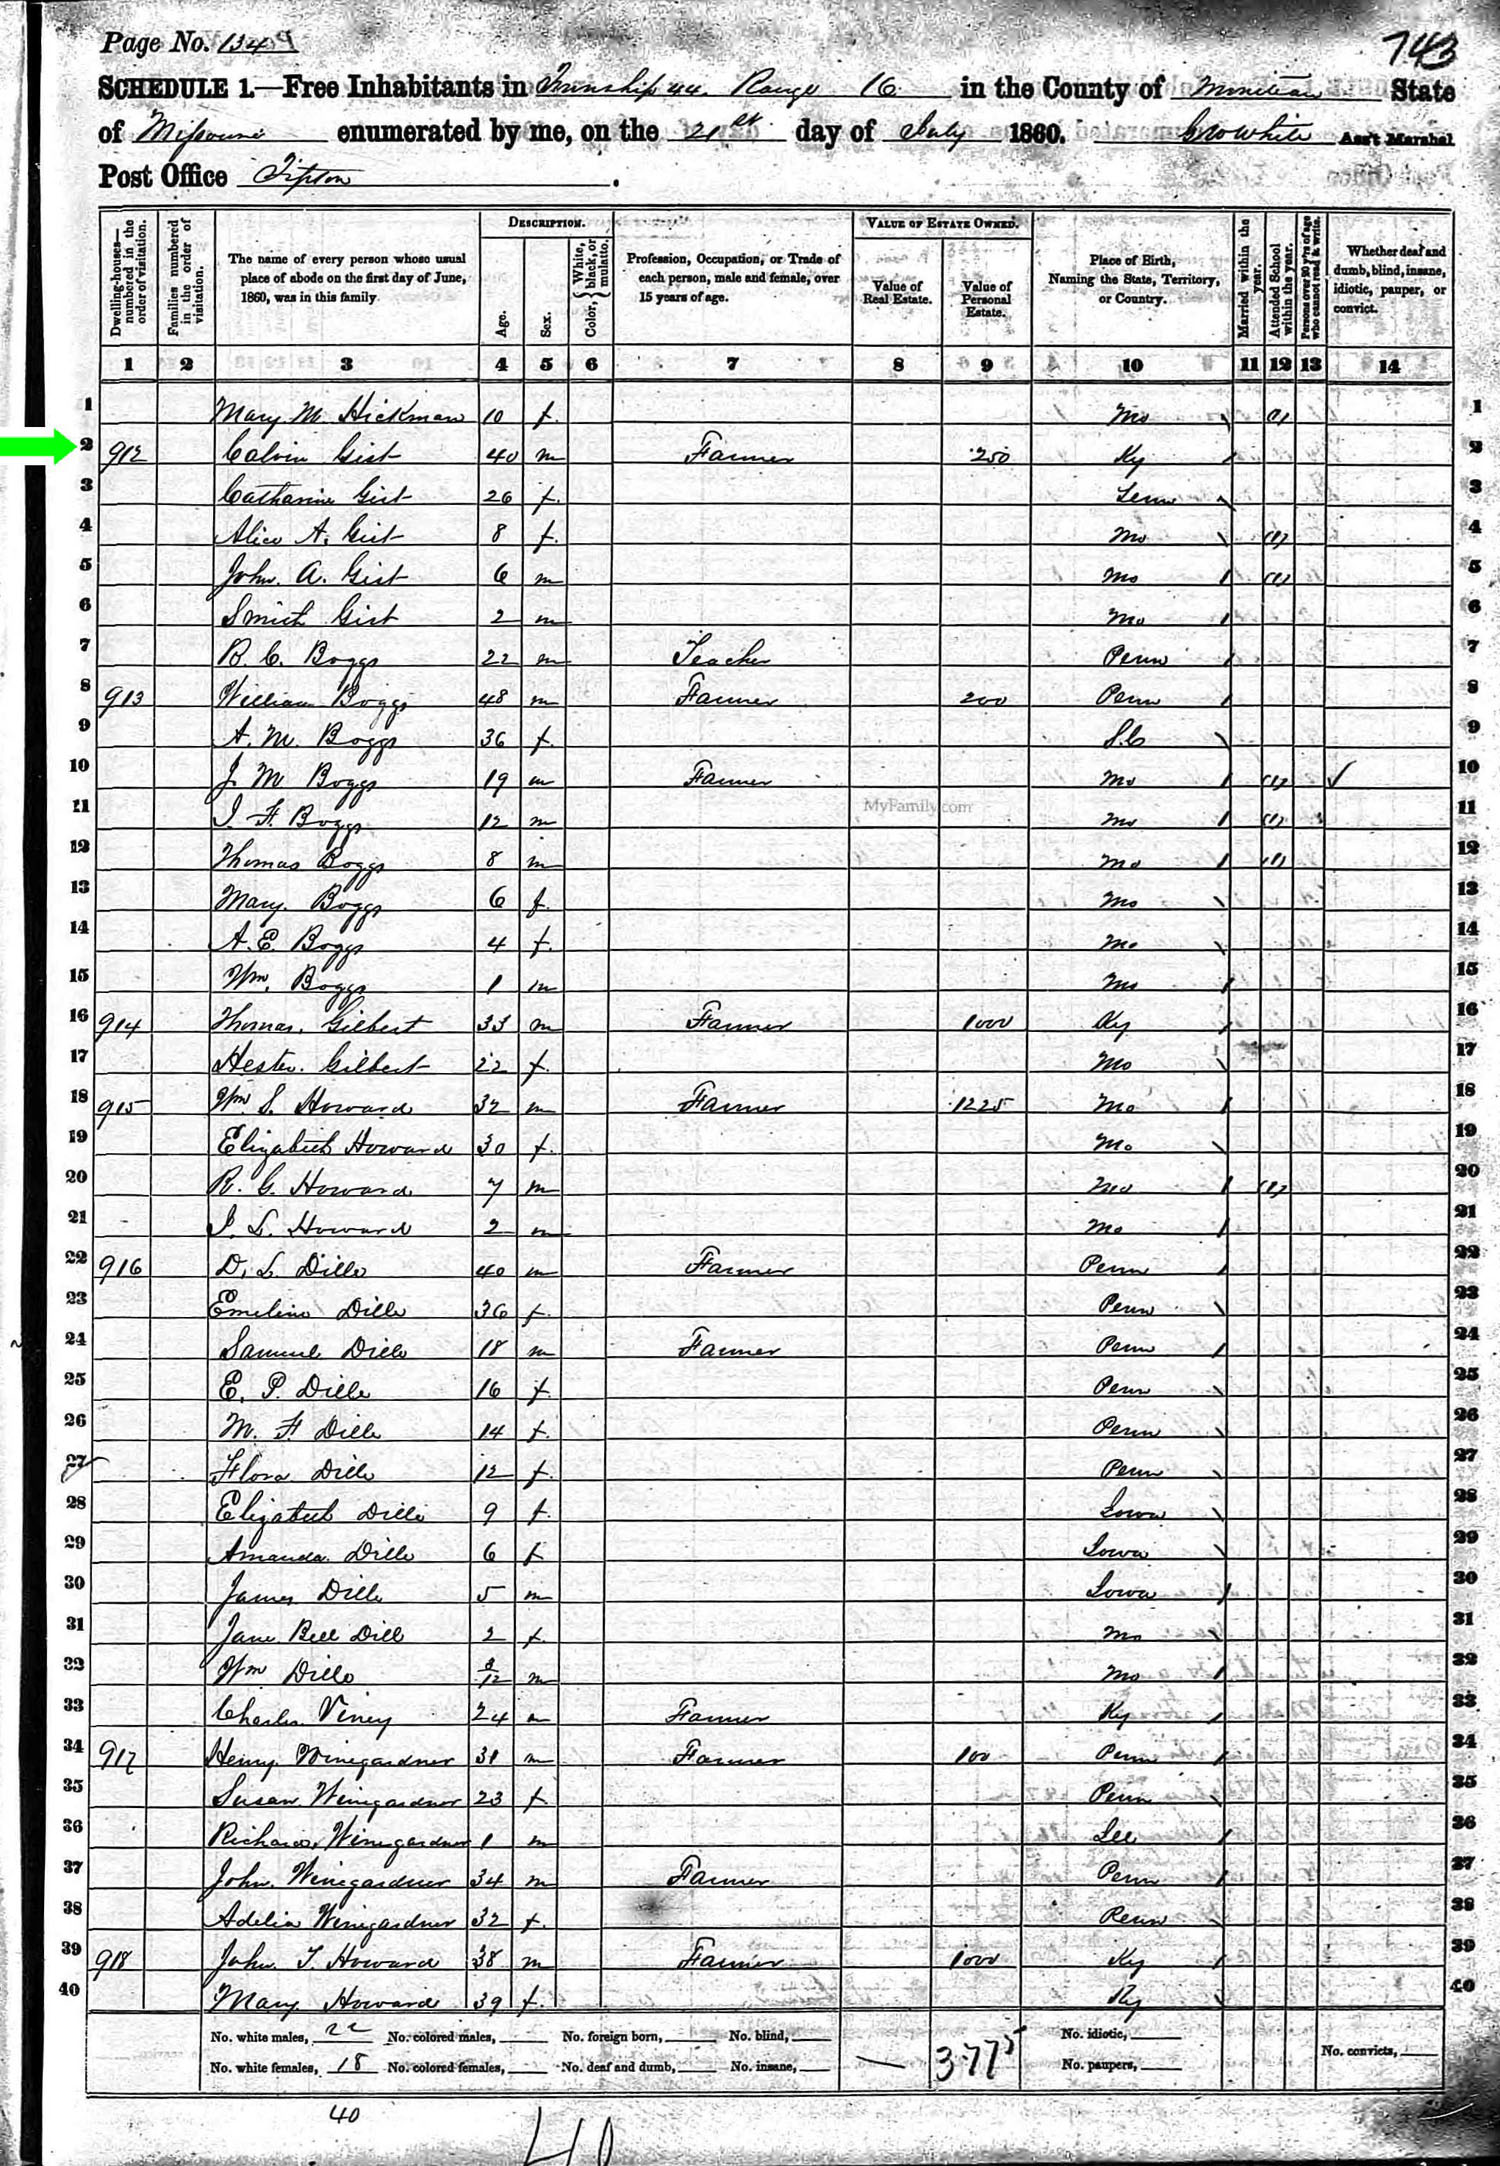 Page No. 134
743
SCHEDULE 1.—Free Inhabitants in Township 44 Range 16 in the County of Moniteau State
of Missouri enumerated by me, on the 21st day of July 1860. Geo White Ass't Marshal
Post Office Tipton.
Dwelling-houses—numbered in the order of visitation.
Families numbered in the order of visitation.
The name of every person whose usual place of abode on the first day of June, 1860, was in this family.
DESCRIPTION.
Age.
Sex.
Color, { White, black, or mulatto.
Profession, Occupation, or Trade of each person, male and female, over 15 years of age.
VALUE OF ESTATE OWNED.
Value of Real Estate.
Value of Personal Estate.
Place of Birth, Naming the State, Territory, or Country.
Married within the year.
Attended School within the year.
Persons over 20 y'rs of age who cannot read & write.
Whether deaf and dumb, blind, insane, idiotic, pauper, or convict.
1 2 3 4 5 6 7 8 9 10 11 12 13 14
1 Mary M Hickman 10 f Mo (1) 1
2 912 Calvin Gist 40 m Farmer 250 Ky 2
3 Catharine Gist 26 f Tenn 3
4 Alice A. Gist 8 f. Mo (1) 4
5 John. A. Gist 6 m Mo (1) 5
6 Smith Gist 2 m Mo 6
7 B. C. Boggs 22 m Teacher Penn 7
8 913 William Boggs 48 m Farmer 200 Penn 8
9 A. M. Boggs 36 f. S.C 9
10 J. M Boggs 19 m Farmer Mo (1) ✓ 10
11 I. F. Boggs 12 m Mo (1) 11
MyFamily.com
12 Thomas Boggs 8 m Mo (1) 12
13 Mary. Boggs 6 f. Mo 13
14 A. E. Boggs 4 f. Mo 14
15 Wm. Boggs 1 m Mo 15
16 914 Thomas. Gilbert 33 m Farmer 1000 Ky 16
17 Hester. Gilbert 22 f. Mo 17
18 915 Wm S. Howard 32 m Farmer 1225 Mo 18
19 Elizabeth Howard 30 f. Mo 19
20 R. G. Howard 7 m Mo (1) 20
21 J. L. Howard 2 m Mo 21
22 916 D. L. Dille 40 m Farmer Penn 22
23 Emeline Dille 36 f. Penn 23
24 Samuel Dille 18 m Farmer Penn 24
25 E. P. Dille 16 f. Penn 25
26 M. F. Dille 14 f. Penn 26
27 Flora Dille 12 f. Penn 27
28 Elizabeth Dille 9 f. Iowa 28
29 Amanda. Dille 6 f Iowa 29
30 James Dille 5 m Iowa 30
31 Jane Bell Dill 2 f. Mo 31
32 Wm Dille /12 m Mo 32
33 Charles. Viney 24 m Farmer Ky 33
34 917 Henry Winegardner 31 m Farmer 100 Penn 34
35 Susan. Winegardner 23 f Penn 35
36 Richard. Winegardner 1 m 36
37 John. Winegardner 34 m Farmer Penn 37
38 Adelia Winegardner 32 f. Penn 38
39 918 John T. Howard 38 m Farmer 1000 Ky 39
40 Mary Howard 39 f. Ky 40
No. white males, 22 No. colored males, No. foreign born, No. blind, No. idiotic,
No. white females, 18 No. colored females, No. deaf and dumb, No. insane, — 3775 No. paupers, No. convicts,
40
40